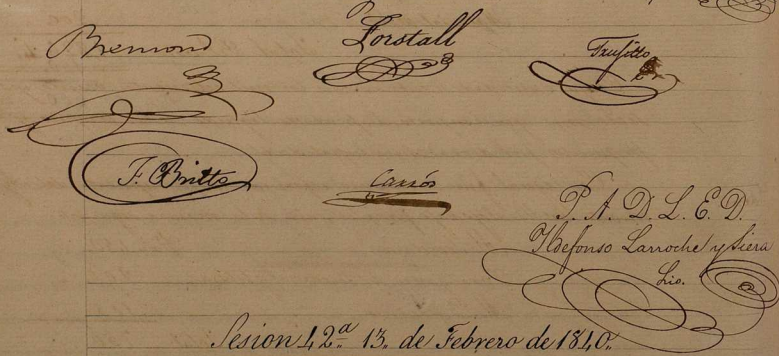 Bremond Forstall Trujillo
F. Britto Carrós P. A. D. L. E. D.
Ildefonso Larroche y Siera
Srio.
Sesion 42.ª 13,, de Febrero de 1840,,